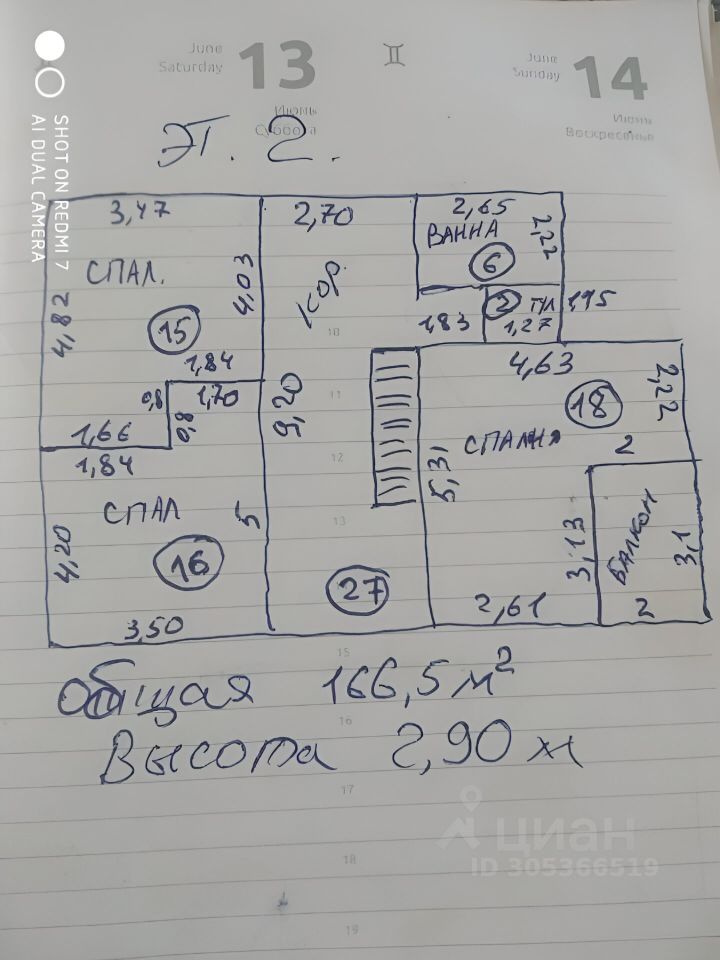 June
Saturday
13
Июнь
Суббота
June
Sunday
14
Июнь
Воскресенье
SHOT ON REDMI 7
AI DUAL CAMERA
ЭТ. 2.
3,47
2,70
2,65
ВАННА
2,22
6
СПАЛ.
4,03
кор.
4,82
15
1,83
2
ТУЛ
1,95
1,27
10
1,84
4,63
0,8
1,70
0,8
9,20
11
18
2,22
1,66
1,84
12
5,31
СПАЛНЯ
2
СПАЛ
5
13
4,20
16
27
3,13
БАЛКОН
3,1
3,50
2,61
2
15
общая 166,5 м²
16
Высота 2,90 м
17
циан
ID 305366519
18
19